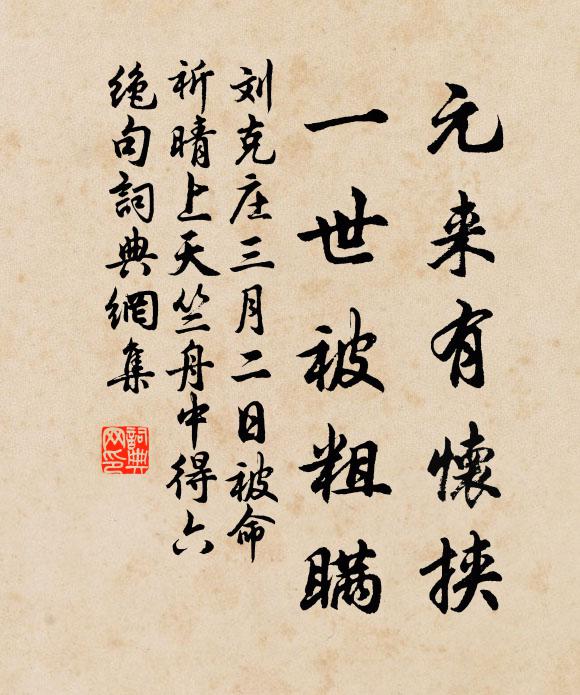 元来有懷挟
一世被粗瞞
刘克庄三月二日被命
祈晴上天竺舟中得六
絶句詞典網集
詞典网印